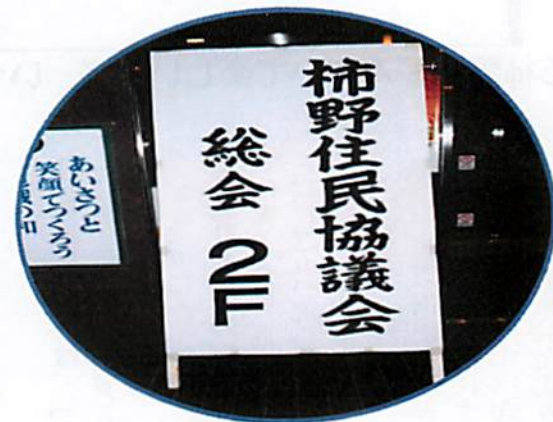 柿野住民協議会
総会 2F
あいさつと
笑顔でつくろう